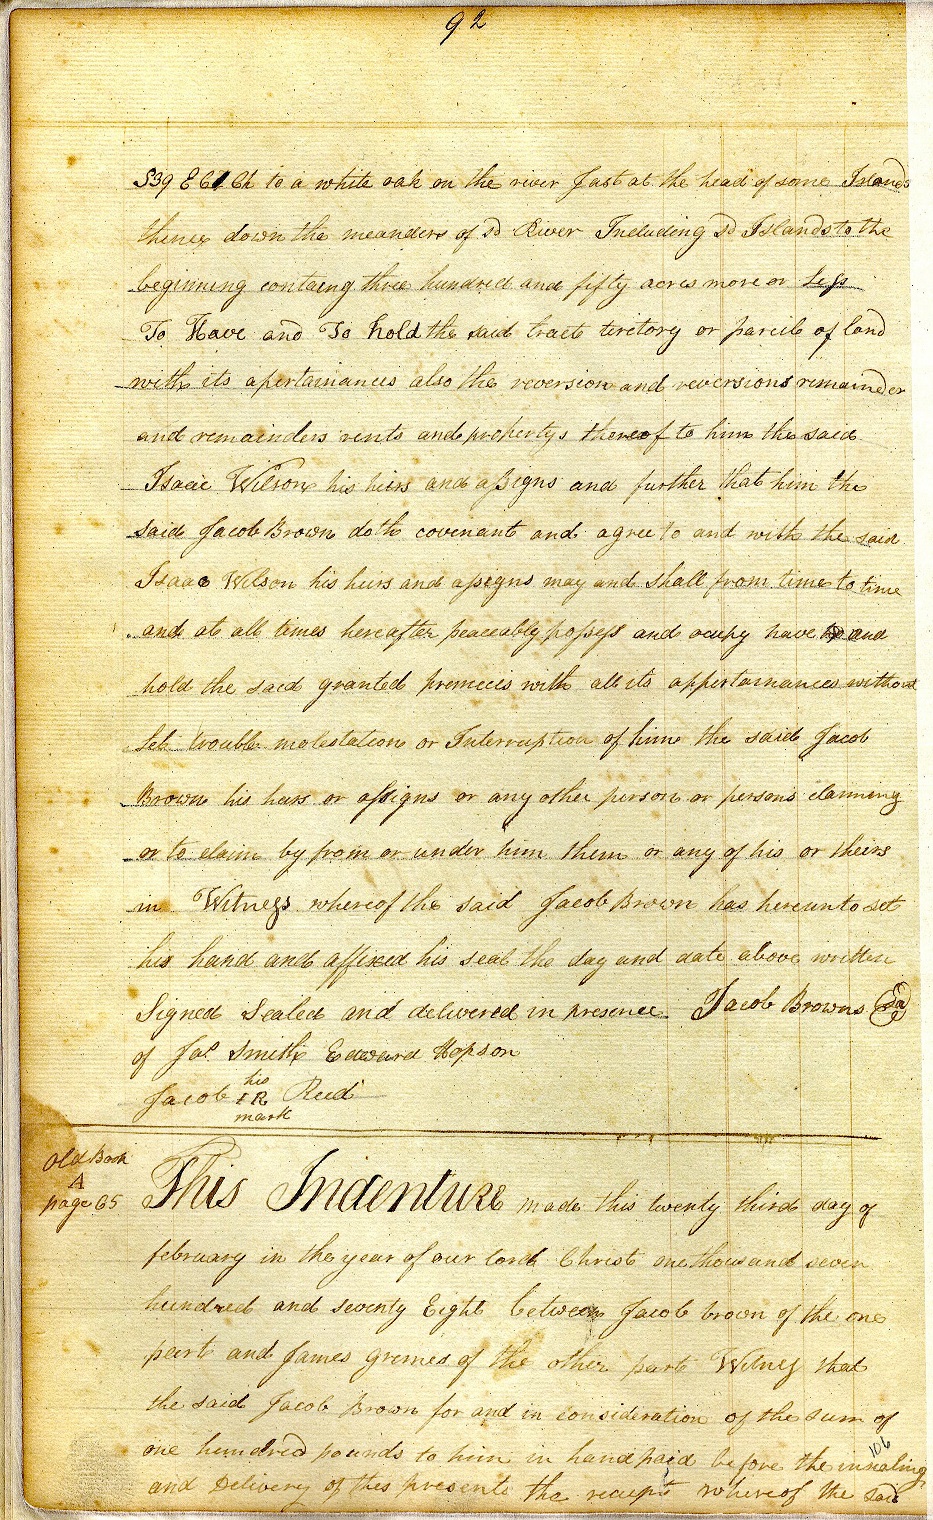 92
S39 E 61 Ch to a white oak on the river Just at the head of some Islands
thence down the meanders of sd River Including sd Islands to the
beginning containg three hundred and fifty acres more or Less
To Have and To hold the said tract tiretory or parcile of land
with its apertainances also the reversion and reversions remainder
and remainders rents and propertys thereof to him the said
Isaac Wilson his heirs and assigns and further that him the
said Jacob Brown doth covenant and agree to and with the said
Isaac Wilson his heirs and assigns may and shall from time to time
and at all times hereafter peaceably possess and ocupy have and
hold the said granted premices with all its appertainances without
Let trouble molestation or Interruption of him the said Jacob
Brown his heirs or assigns or any other person or persons claiming
or to claim by from or under him them or any of his or theirs
in Witness whereof the said Jacob Brown has hereunto set
his hand and affixed his seal the day and date above written
Signed Sealed and delivered in presence Jacob Browns
of Jas Smith Edward Hopson
his
Jacob I R Reed
mark
Old Book
A
page 65
This Indenture made this twenty third day of
february in the year of our lord Christ one thousand seven
hundred and seventy Eight between Jacob brown of the one
peart and James grimes of the other part Witness that
the said Jacob Brown for and in consideration of the sum of
106
one hundred pounds to him in hand paid before the insealing
and Delivery of thes presents the receipt whereof the said